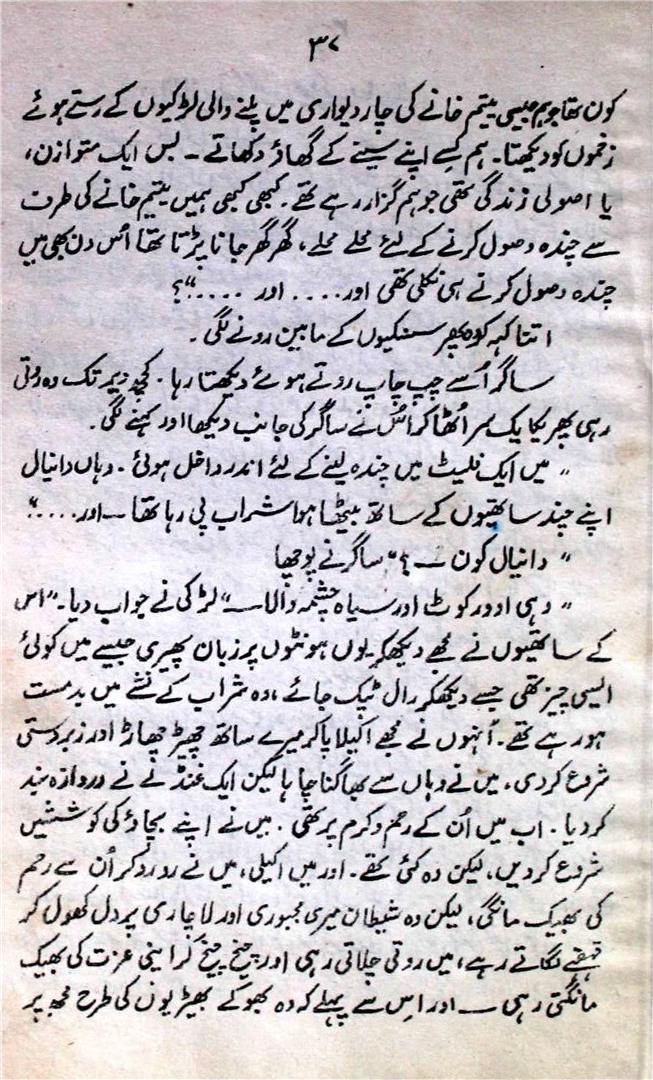 ۳۷
کون تھا جو ہم جیسی یتیم خانے کی چار دیواری میں پلنے والی لڑکیوں کے رستے ہوئے
زخموں کو دیکھتا۔ ہم کسے اپنے سینے کے گھاؤ دکھاتے ۔ بس ایک متوازن،
یا اصولی زندگی تھی جو ہم گزار رہے تھے۔ کبھی کبھی ہمیں یتیم خانے کی طرف
سے چندہ وصول کرنے کے لئے محلے محلے، گھر گھر جانا پڑتا تھا اُس دن بھی میں
چندہ وصول کرنے ہی نکلی تھی اور.... اور ....“؟
اتنا کہہ کر وہ پھر سسکیوں کے مابین رونے لگی۔
ساگر اُسے چپ چاپ روتے ہوئے دیکھتا رہا۔ کچھ دیر تک وہ روتی
رہی پھر یکایک سر اُٹھا کر اُس نے ساگر کی جانب دیکھا اور کہنے لگی۔
”میں ایک فلیٹ میں چندہ لینے کے لئے اندر داخل ہوئی۔ وہاں دانیال
اپنے چند ساتھیوں کے ساتھ بیٹھا ہوا شراب پی رہا تھا ۔ اور....“
”دانیال کون ۔ ؟“ ساگر نے پوچھا
”وہی اوور کوٹ اور سیاہ چشمہ والا۔“ لڑکی نے جواب دیا۔ ”اس
کے ساتھیوں نے مجھے دیکھ کر یوں ہونٹوں پر زبان پھیری جیسے میں کوئی
ایسی چیز تھی جسے دیکھ کر رال ٹپک جائے، وہ شراب کے نشے میں بدمست
ہو رہے تھے۔ اُنہوں نے مجھے اکیلا پا کر میرے ساتھ چھیڑ چھاڑ اور زبردستی
شروع کر دی، میں نے وہاں سے بھاگنا چاہا لیکن ایک غنڈے نے نے دروازہ بند
کر دیا۔ اب میں اُن کے رحم و کرم پر تھی۔ میں نے اپنے بچاؤ کی کوششیں
شروع کر دیں، لیکن وہ کئی تھے۔ اور میں اکیلی، میں نے رو رو کر اُن سے رحم
کی بھیک مانگی، لیکن وہ شیطان میری مجبوری اور لاچاری پر دل کھول کر
قہقہے لگاتے رہے، میں روتی چلاتی رہی اور چیخ چیخ کر اپنی عزت کی بھیک
مانگتی رہی ۔ اور اس سے پہلے کہ وہ بھوکے بھیڑیوں کی طرح مجھ پر